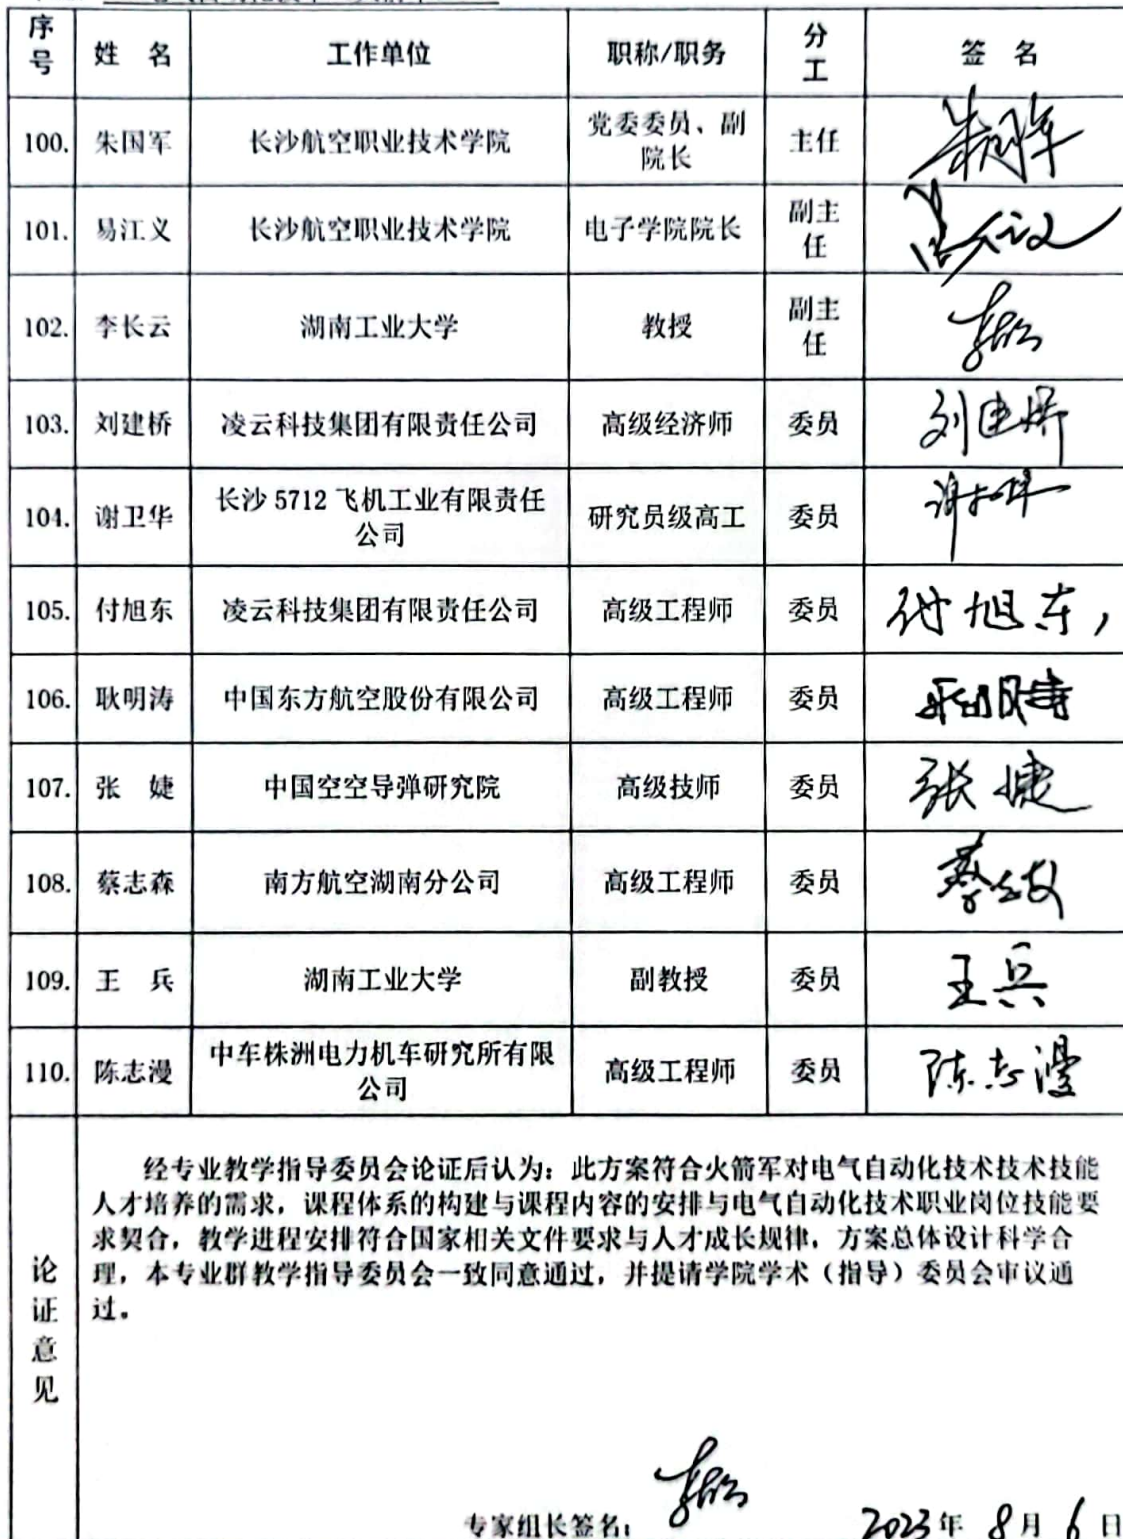 序号 姓 名 工作单位 职称/职务 分工 签 名
100. 朱国军 长沙航空职业技术学院 党委委员、副院长 主任 朱国军
101. 易江义 长沙航空职业技术学院 电子学院院长 副主任
102. 李长云 湖南工业大学 教授 副主任 李长云
103. 刘建桥 凌云科技集团有限责任公司 高级经济师 委员 刘建桥
104. 谢卫华 长沙 5712 飞机工业有限责任公司 研究员级高工 委员 谢卫华
105. 付旭东 凌云科技集团有限责任公司 高级工程师 委员 付旭东
106. 耿明涛 中国东方航空股份有限公司 高级工程师 委员 耿明涛
107. 张 婕 中国空空导弹研究院 高级技师 委员 张婕
108. 蔡志森 南方航空湖南分公司 高级工程师 委员
109. 王 兵 湖南工业大学 副教授 委员 王兵
110. 陈志漫 中车株洲电力机车研究所有限公司 高级工程师 委员 陈志漫
论证意见
经专业教学指导委员会论证后认为：此方案符合火箭军对电气自动化技术技术技能
人才培养的需求，课程体系的构建与课程内容的安排与电气自动化技术职业岗位技能要
求契合，教学进程安排符合国家相关文件要求与人才成长规律，方案总体设计科学合
理，本专业群教学指导委员会一致同意通过，并提请学院学术（指导）委员会审议通
过。
专家组长签名： 李长云 2023年 8月 6日